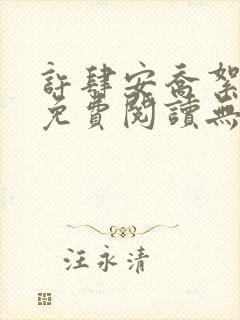 許肆安喬絮
免費閱讀無
汪永清